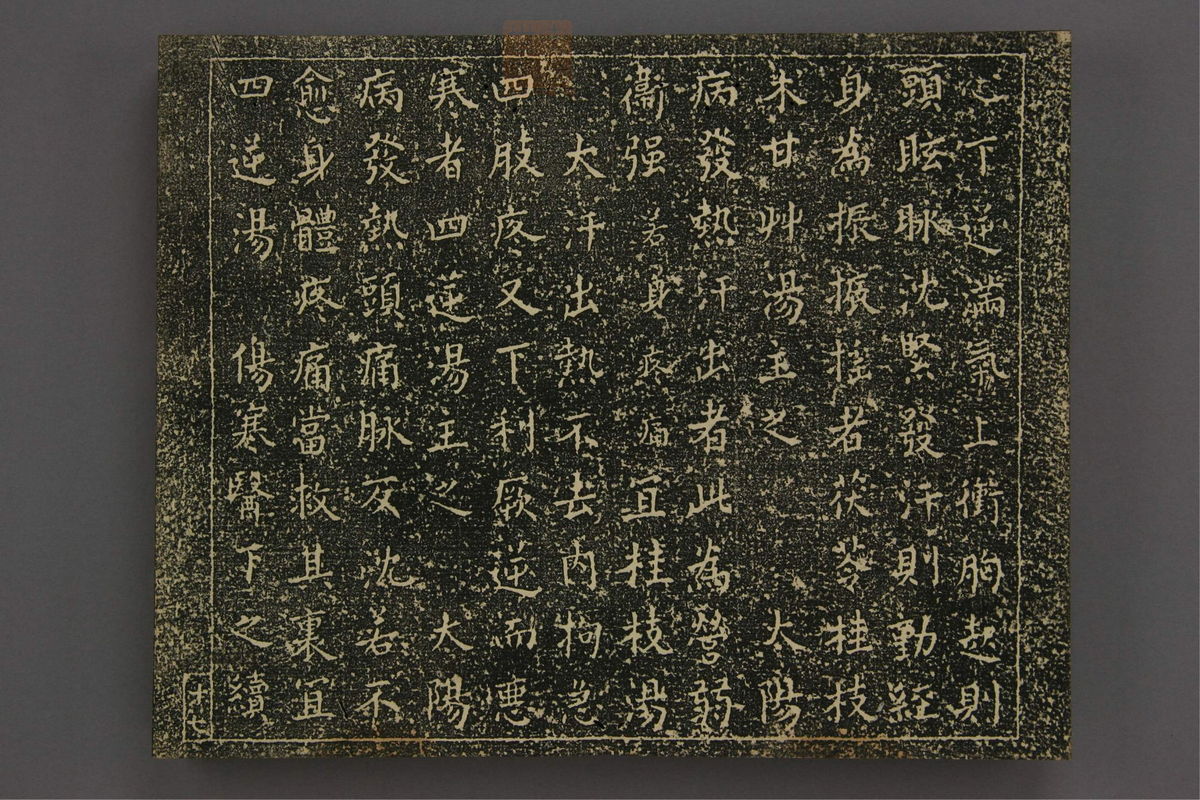 心下逆滿氣上衝胸起則
頭眩脉沈緊發汗則動經
身為振振搖者茯苓桂枝
朮甘艸湯主之　太陽
病發熱汗出者此為營弱
衞强若身疼痛宜桂枝湯
大汗出熱不去內拘急
四肢疼又下利厥逆而惡
寒者四逆湯主之　太陽
病發熱頭痛脉反沈若不
愈身體疼痛當救其裏宜
四逆湯　傷寒醫下之續
十七